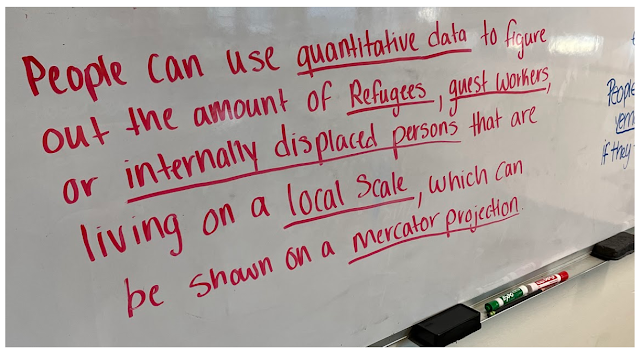 People can use quantitative data to figure
out the amount of Refugees, guest workers,
or internally displaced persons that are
living on a local scale, which can
be shown on a mercator projection.
People
if they
EXPO